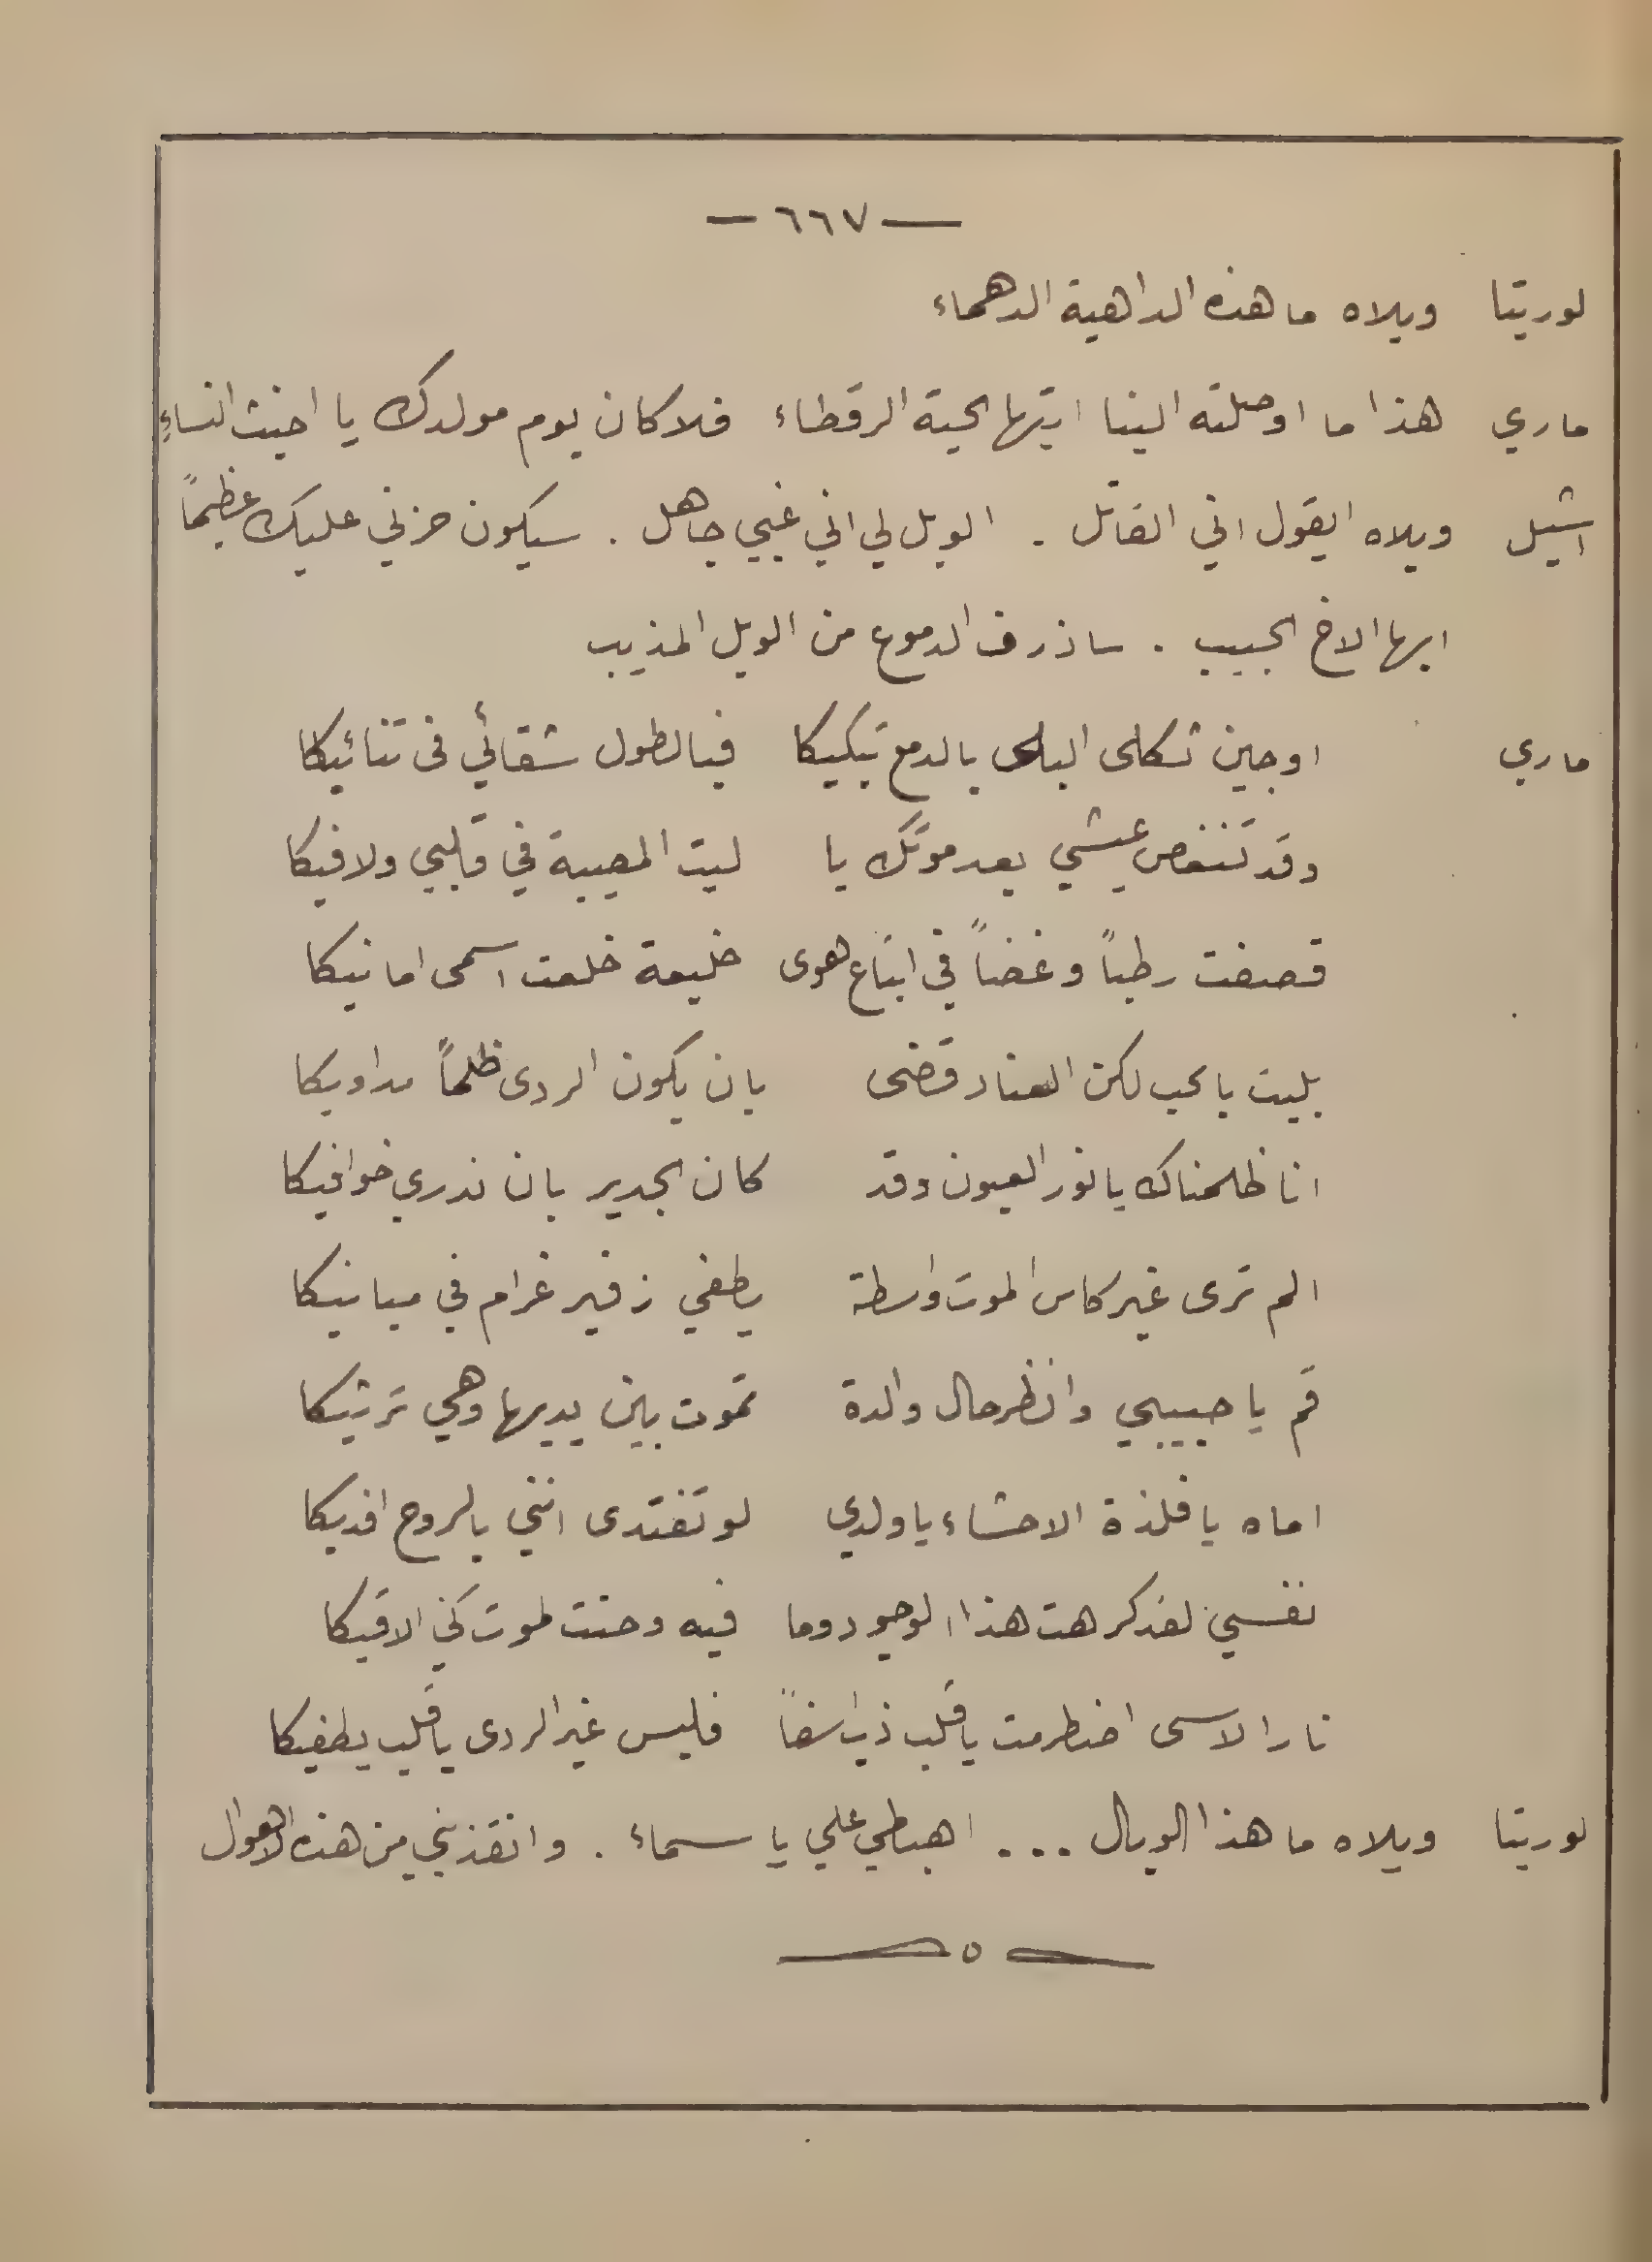 — ٦٦٧ —
لوريتا ويلاه ما هذه الداهية الدهماء
ماري هذا ما اوصلته الينا ايتها الحية الرقطاء فلا كان يوم مولدك يا اخبث النساءِ
اشيل ويلاه ايقول اني القاتل . الويل لي اني غبي جاهل . سيكون حزني عليك عظيماً
ايها الاخ الحبيب . ساذرف الدموع من الويل المذيب
ماري اوجين ثكلى البلى بالدمع تبكيكا فيا لطول شقائي في تنائيكا
وقد تنغص عيشي بعد موتك يا ليت المصيبة في قلبي ولا فيكا
قصفت رطباً وغضاً في اتباع هوى خليعة خلعت اسمى امانيكا
بليت بالحب لكن العناد قضى بان يكون الردى ظلماً مداويكا
انا ظلمناك يا نور العيون وقد كان الجدير بان ندري خوافيكا
الم ترى غير كاس الموت واسطة يطفي زفير غرام في مبانيكا
قم يا حبيبي وانظر حال والدة تموت بين يديها وهي ترثيكا
اماه يا فلذة الاحشاء يا ولدي لو تفتدى انني بالروح افديكا
نفسي لقد كرهت هذا الوجود وما فيه وحنت لموت كي الاقيكا
نار الاسى اضطرمت يا قلب ذب اسفاً فليس غير الردى يا قلب يطفيكا
لوريتا ويلاه ما هذا الوبال ... اهبطي علي يا سماء . وانقذيني من هذه الاهوال